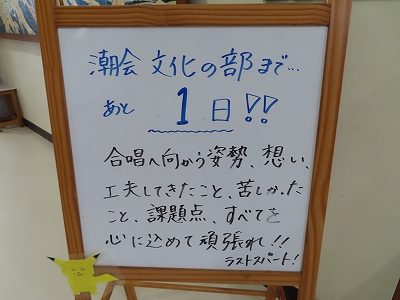 潮会 文化の部まで…
あと 1日!!
合唱へ向かう姿勢、想い、
工夫してきたこと、苦しかった
こと、課題点、すべてを
心に込めて頑張れ!!
ラストスパート!